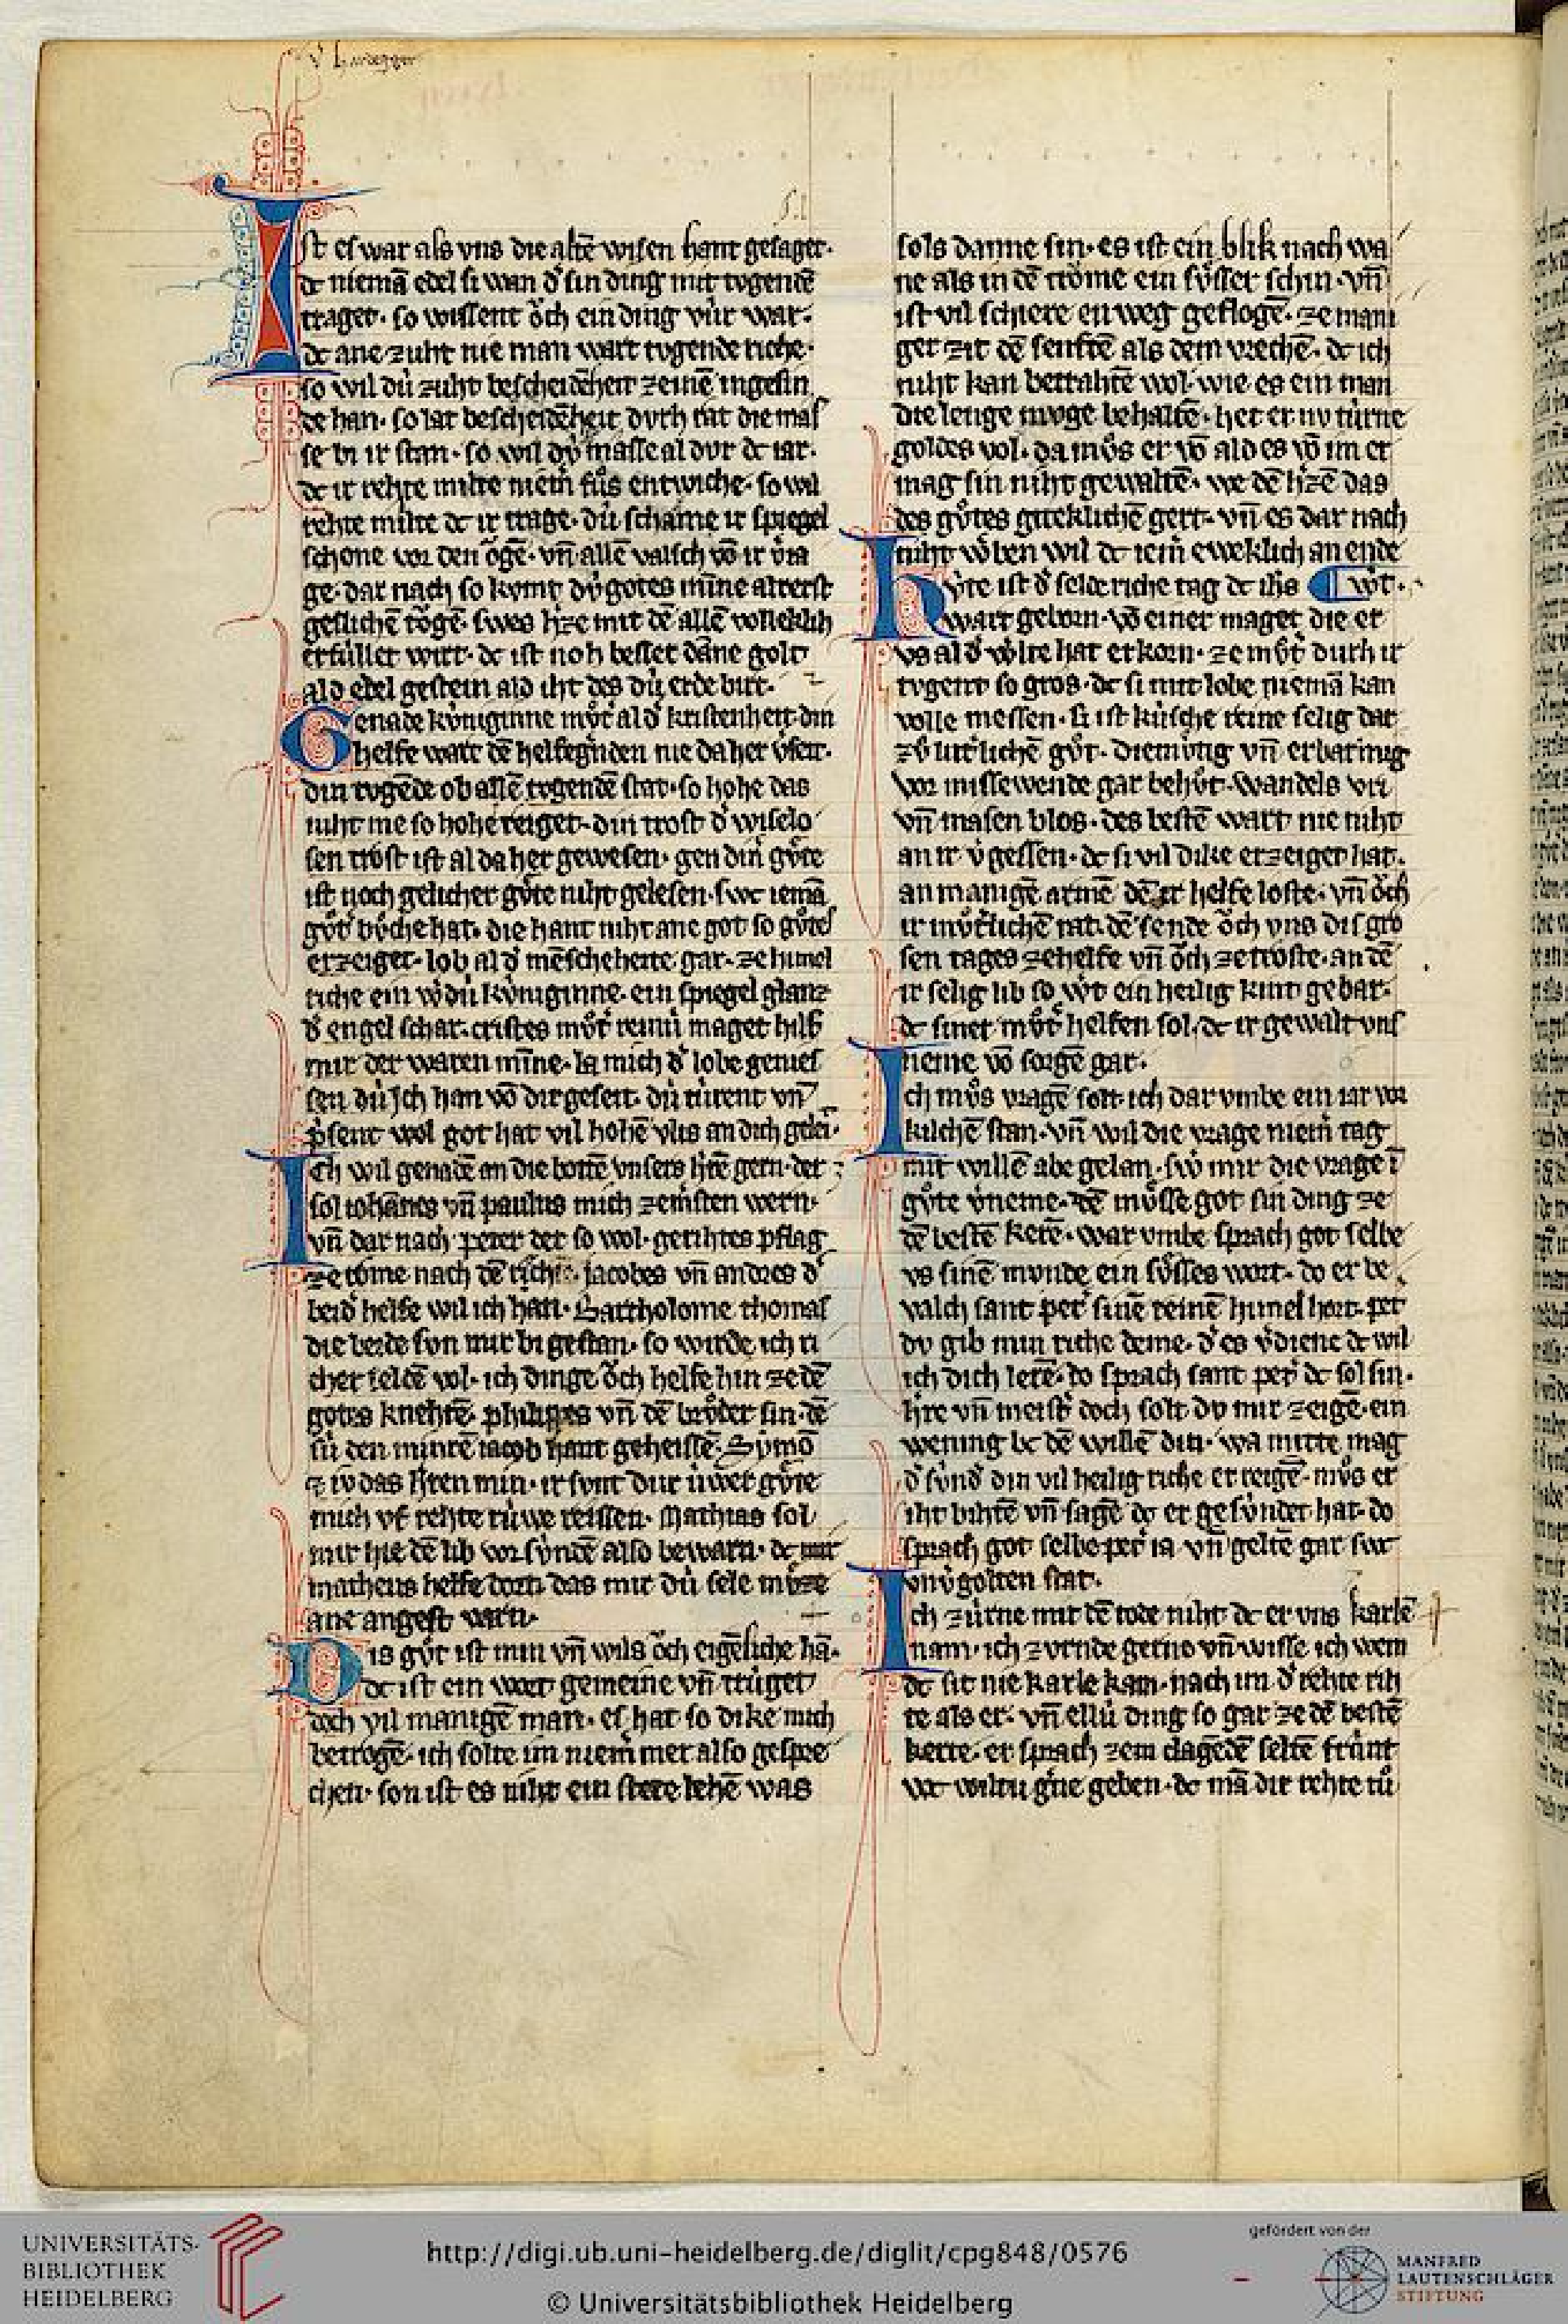 v̓ hardegger
Ist es war als vns die altē wisen hant gesaget·
dc niemā edel si wan d̓ sin ding mit tvgendē
traget· so wissent o̍ch ein ding vúr war·
dc ane zuht nie man wart tvgende riche·
so wil dú zuht bescheidēheit zeinē ingesin
de han· so lat bescheidēheit dvrh rat die mas
se bi ir stan· so wil dv̍ masse al dvr dc iar·
dc ir rehte milte niem̄ fůs entwiche· so wil
rehte milte dc ir trage· dú schame ir spiegel
schone vor den o̍gē· vn̄ allē valsch vō ir
ge· dar nach so kvmt dv̍ gotes mīne alrerst
geslichē to̍gē· swes h̓ze mit dē allē volleklih
erfúllet wirt· dc ist noh besser dāne golt
ald edel gestein ald iht des dú erde birt·
Genade kúniginne mv̊t̓ al d̓ kristenheit· din
helfe wart dē helfegn̓den nie da her v̓seit·
din tvgēde ob allē tvgendē stat· so hohe das
niht me so hohe reiget· din trost d̓ wiselo
sen trost ist al da her gewesen· gen din̓ gv̊te
ist noch gelicher gv̊te niht gelesen· swc iemā
gv̊t̓ bv̊che hat· die hant niht ane got so gv̊tes
erzeiget· lob al d̓ mēscheheite gar· ze himel
riche ein w̓dú kúniginne· ein spiegel glanz
d̓ engel schar· cristes mv̊t̓ reinú maget hilf
mir der waren mīne· la mich d̓ lobe genies
sen dú ich han vō dir geseit· dú túrent vn̄
p̓sent wol got hat vil hohē vlis an dich gelei·
Ich wil genadē an die bottē vnsers h̓rē gern· der
sol iohānes vn̄ paulus mich zem̓sten wern·
vn̄ dar nach peter der so wol· gerihtes pflag
ze rome nach dē riche· jacobes vn̄ andres d̓
beid̓ helfe wil ich han· Bartholome thomas
die beide son mir bi gestan· so wirde ich ri
cher seldē vol· ich dinge o̍ch helfe hin ze dē
gotes knehtē· philippes vn̄ dē brv̊der sin· dē
si den minrē iacob hant geheissē· Symō
ivdas h̓ren min· ir svnt dur úwer gv̊te
mich vf rehte rúwe reissen· Mathias sol
mir hie dē lib vor súndē also bewarn· dc mir
matheus helfe dort· das mir dú sele mv̊ze
ane angest varn·
Dis gv̊t ist min vn̄ wils o̍ch eigēliche hā·
dc ist ein wort gemeine vn̄ trúget
doch vil manigē man· es hat so dike mich
betrogē· ich solte im niem̓ mer also gespre
chen· son ist es niht ein stete lehē was
sols danne sin· es ist ein blik nach wa
ne als in dē trome ein sv̊sser schin· vn̄
ist vil schiere en weg geflogē· ze mani
ger zit dē senftē als dem vrechē· dc ich
niht kan betrahtē wol· wie es ein man
die lenge mvge behaltē· het er nv túrne
goldes vol· da mv̊s er vō ald es vō im er
mag sin niht gewaltē· we dē h̓zē das
des gv̊tes giteklichē gert· vn̄ es dar nach
niht w̓ben wil dc iem̓ eweklich an ende
hv̍te ist d̓ selde riche tag dc ih̄s ¶ w̓t·
wart geborn· vō einer maget die er
vs al d̓ w̓lte hat erkorn· ze mv̊t̓ durh ir
tvgent so gros· dc si mit lobe niemā kan
volle messen· si ist kúsche reine selig dar
zv̊ lut̓lichē gv̊t· diemv̊tig vn̄ erbarmig
vor missewende gar behv̊t· Wandels vri
vn̄ masen blos· des bestē wart nie niht
an ir v̓gessen· dc si vil dike erzeiget hat·
an manigē armē dē ir helfe loste· vn̄ o̍ch
ir mv̊t̓lichē rat· dē sende o̍ch vns dis gro
sen tages ze helfe vn̄ o̍ch ze troste· an dē
ir selig lib so w̓t ein heilig kint gebar·
dc siner mv̊t̓ helfen sol· dc ir gewalt vns
neme vō sorgē gar·
Ich mv̊s vragē solt ich dar vmbe ein iar vor
kilchē stan· vn̄ wil die vrage niem̓ tag
mit willē abe gelan· sw̓ mir die vrage ī
gv̊te v̓neme· dē mv̊sse got sin ding ze
dē bestē kerē· war vmbe sprach got selbe
vs sinē mvnde ein sv̊sses wort· do er be
valch sant pet̓ sinē reinē himel hort· pet̓
dv gib min riche deme· d̓ es v̓diene dc wil
ich dich lerē· do sprach sant pet̓ dc sol sin·
h̓re vn̄ meist̓ doch solt dv mir zeigē· ein
wening bc dē willē din· wa mitte mag
d̓ súnd̓ din vil heilig riche er reigē· mv̊s er
iht bihtē vn̄ sagē dc er gesúndet hat· do
sprach got selbe pet̓ ia vn̄ geltē gar swc
vnv̓golten stat·
Ich zúrne mit dē tode niht dc er vns karlē
nam· ich zvrnde gerno vn̄ wisse ich wem
dc sit nie karle kam· nach im d̓ rehte rih
te als er· vn̄ ellú ding so gar ze dē bestē
kerte· er sprach zem clagēdē seltē frúnt
wc wiltu g̓ne geben· dc mā dir rehte tů
UNIVERSITÄTS-
BIBLIOTHEK
HEIDELBERG
http://digi.ub.uni-heidelberg.de/diglit/cpg848/0576
© Universitätsbibliothek Heidelberg
gefördert von der
MANFRED
LAUTENSCHLÄGER
STIFTUNG